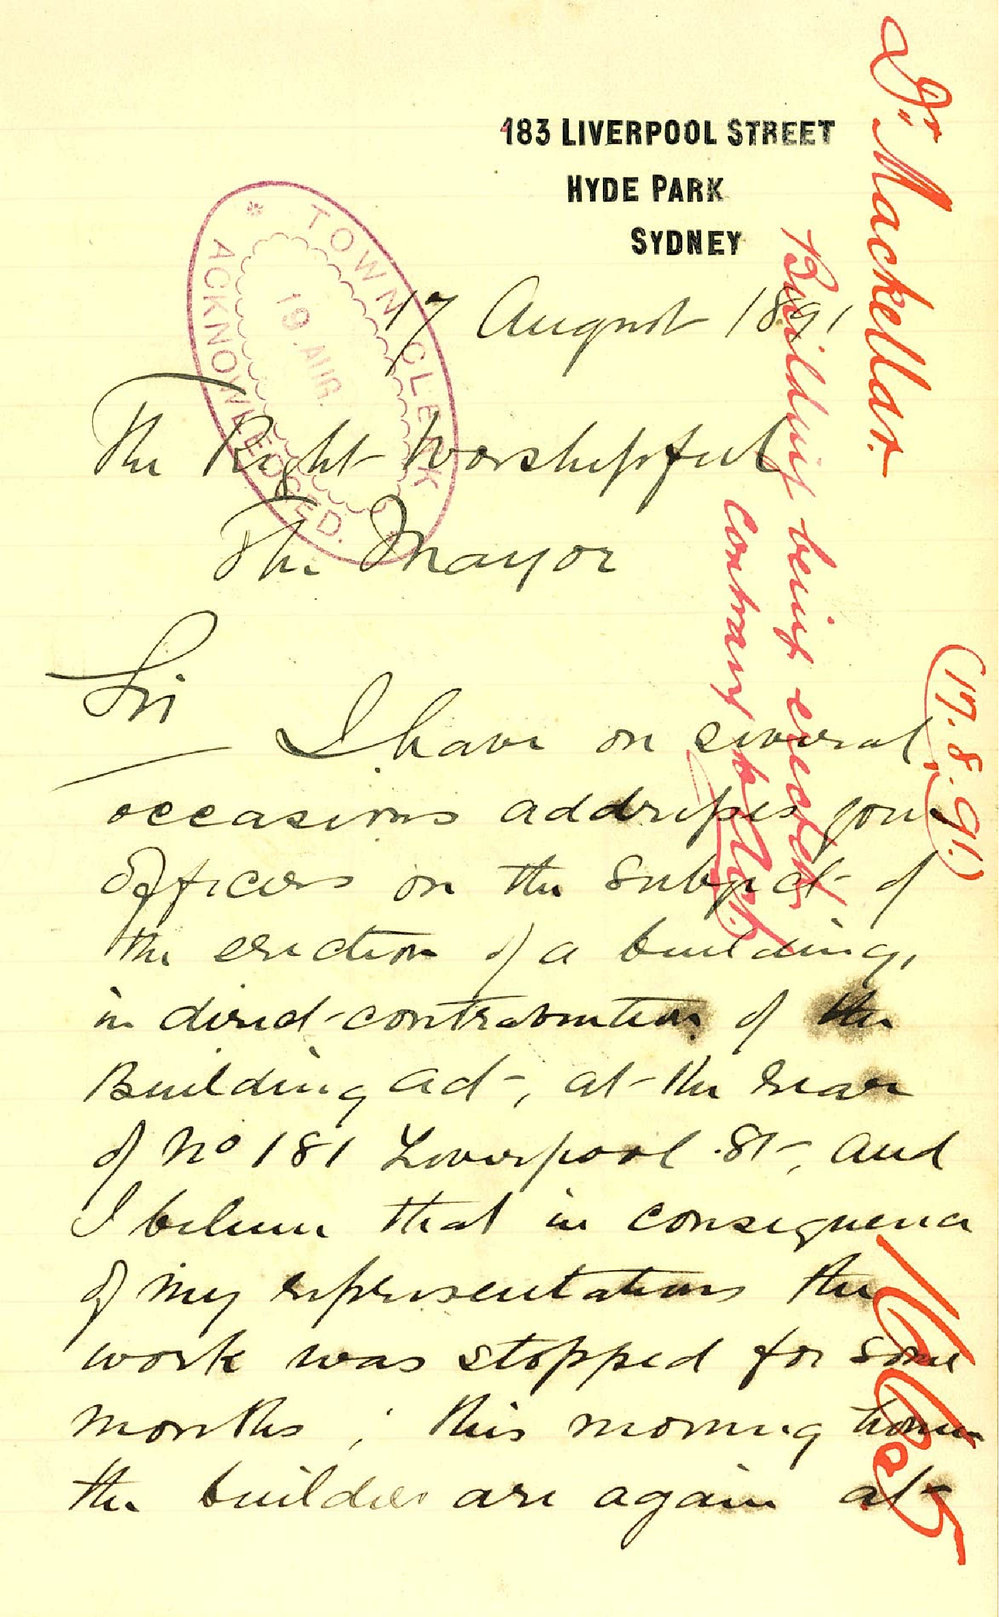 183 LIVERPOOL STREET
HYDE PARK
SYDNEY
17 August 1891
The Right Worshipful
The Mayor
Sir
I have on several
occasions addresses your
Officers on the subject of
the erection of a building,
in direct contravention of the
Building Act, at the rear
of No 181 Liverpool St, and
I believe that in consequence
of my representations the
work was stopped for some
months; this morning however
the builders are again at
* TOWN CLERK
19 AUG.
ACKNOWLEDGED.
Dr Mackellar.
Building being erected
contrary to Act.
(17.8.91.)